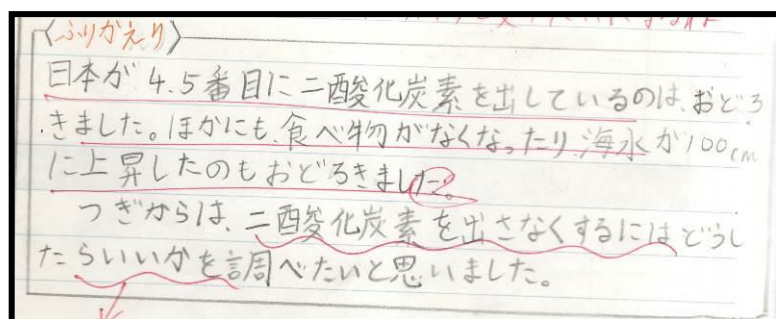 〈ふりかえり〉
日本が4.5番目に二酸化炭素を出しているのは、おどろ
きました。ほかにも、食べ物がなくなったり海水が100cm
に上昇したのもおどろきました。
つぎからは、二酸化炭素を出さなくするにはどうし
たらいいかを調べたいと思いました。